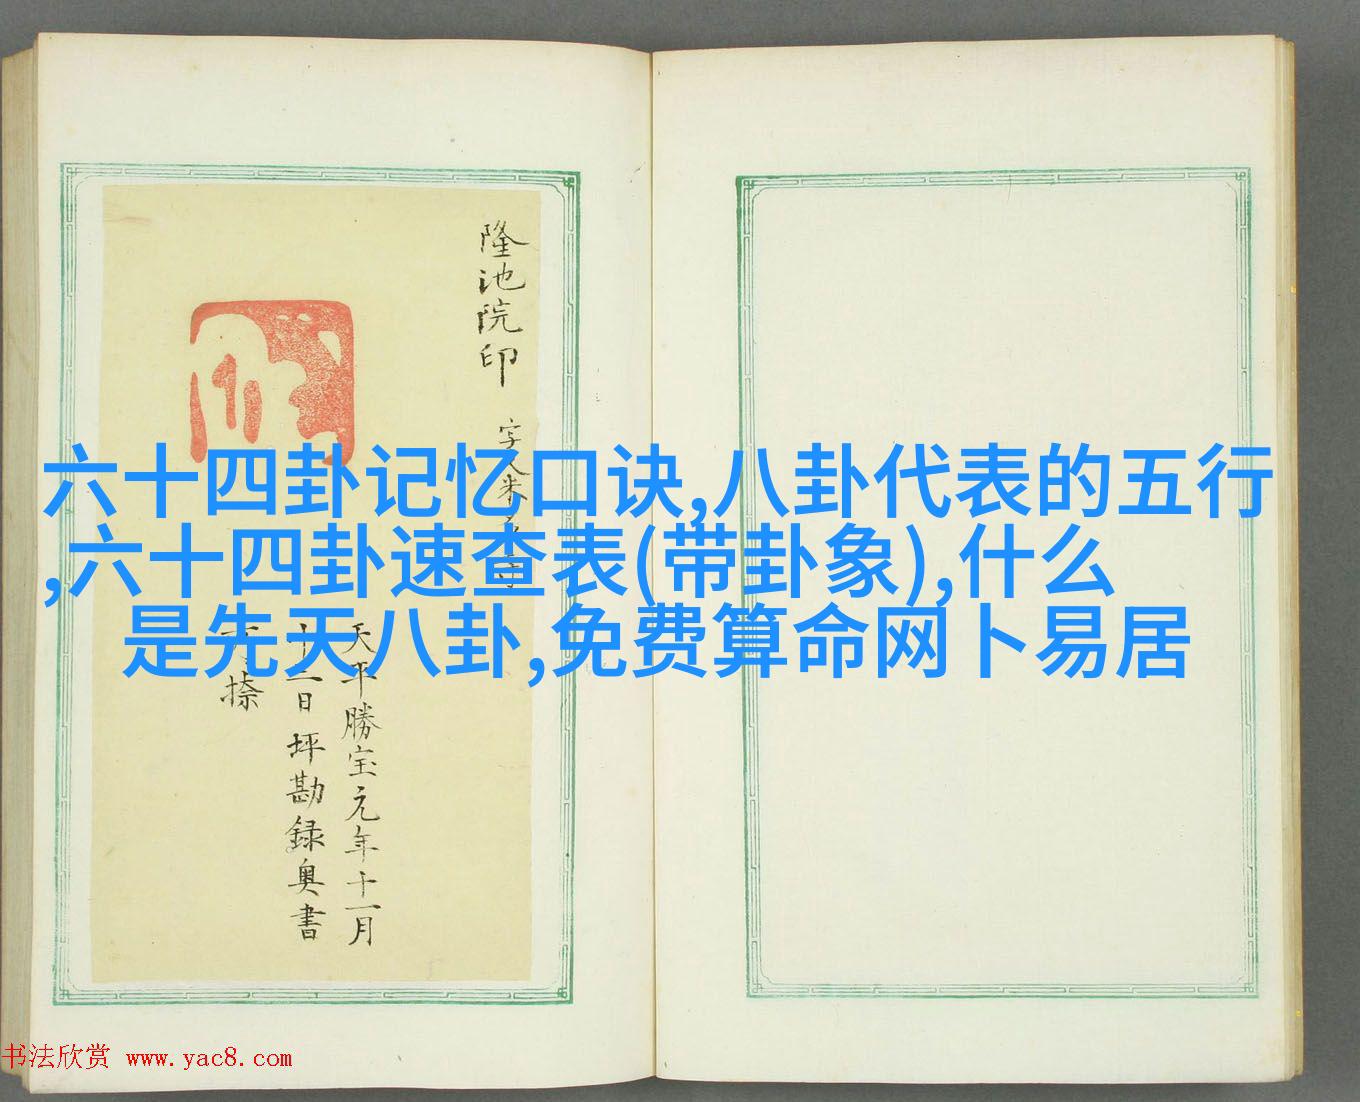 六十四卦记忆口诀,八卦代表的五行
,六十四卦速查表(带卦象),什么
是先天八卦,免费算命网卜易居
隆池院印
天平勝宝元年十一月
十一日 坪勘録奥書
书法欣赏 www.yac8.com